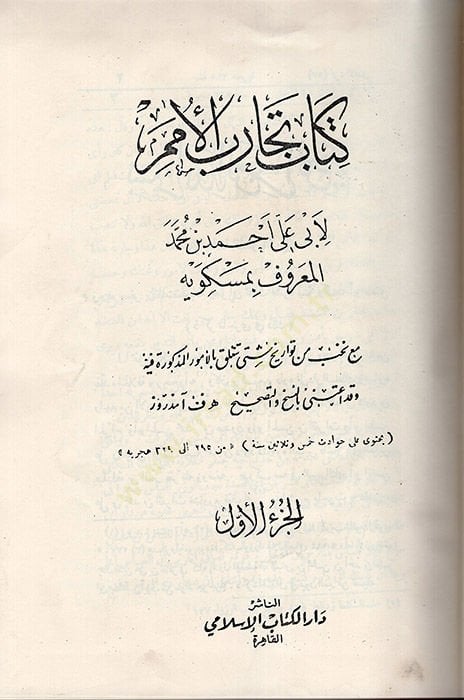 كتاب تجارب الأمم
لأبي علي أحمد بن محمد
المعروف بمسكويه
مع نخب من تواريخ شتى تتعلق بالأمور المذكورة فيه
وقد اعتنى بالنسخ والتصحيح ه. ف. آمدروز
( يحتوى على حوادث خمس وثلاثين سنة ) « من ٢٩٥ الى ٣٢٩ هجرية »
الجزء الأول
الناشر
دار الكتاب الإسلامي
القاهرة